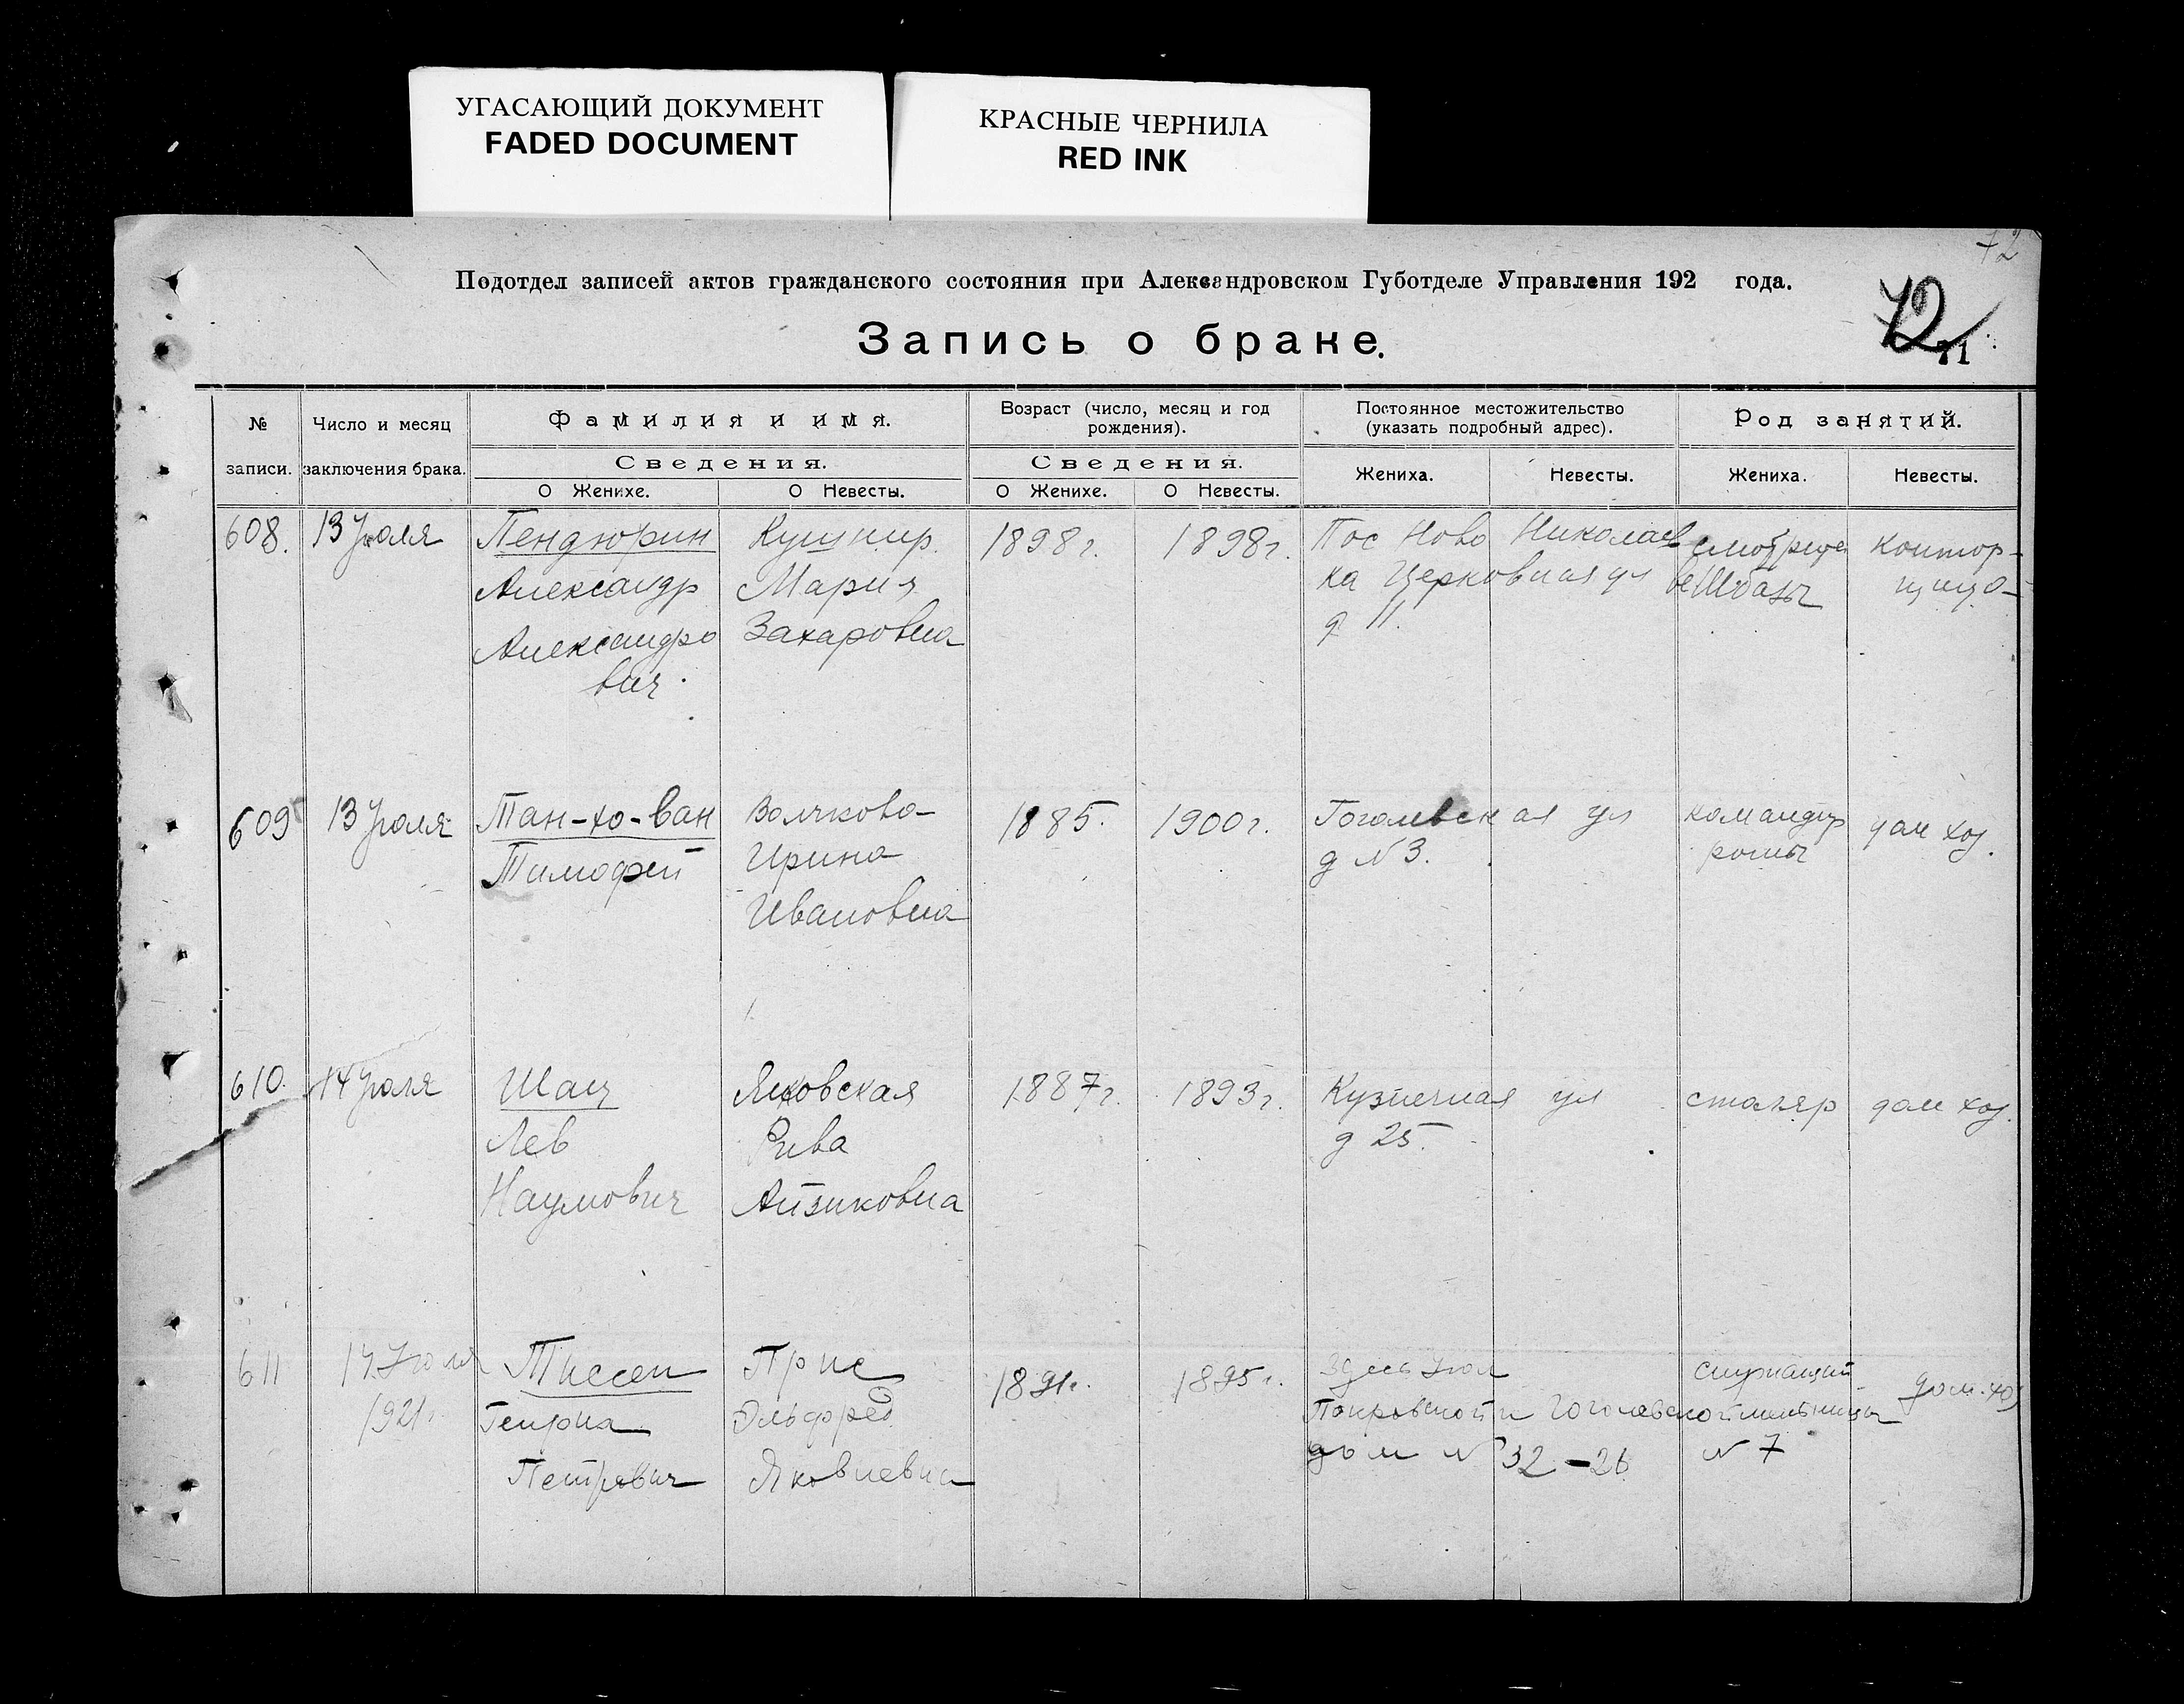 УГАСАЮЩИЙ ДОКУМЕНТ
FADED DOCUMENT
КРАСНЫЕ ЧЕРНИЛА
RED INK
72
Подотдел записей актов гражданского состояния при Александровском Губотделе Управления 192 года.
72
71
Запись о браке.
№ записи.
Число и месяц заключения брака.
Фамилия и имя.
Сведения.
О Женихе.
О Невесты.
Возраст (число, месяц и год
рождения).
Сведения.
О Женихе.
О Невесты.
Постоянное местожительство
(указать подробный адрес).
Жениха.
Невесты.
Род занятий.
Жениха.
Невесты.
608.
13 Июля
Пендюрин
Александр
Александро
вич.
Кушнир
Мария
Захаровна
1898г.
1898г.
Пос Ново Николаев
ка Церковная ул
д 11.
контор-
щица
609
13 Июля
Тан-хо-ван
Тимофей
Волчкова
Ирина
Ивановна
1885.
1900г.
Гоголевская ул
д N 3.
командир
роты
дом хоз.
610.
14 Июля
Шац
Лев
Наумович
Яковская
Рива
Айзиковна
1887г.
1893г.
Кузнечная ул
д 25.
столяр
дом хоз.
611
14 Июля
1921г.
Тиссен
Генрих
Петрович
Прис
Яковлевна
1891г.
1895г.
Здесь угол
Покровской и Гоголевской
дом N 32-26
служащий
мельницы
N 7
дом.хоз